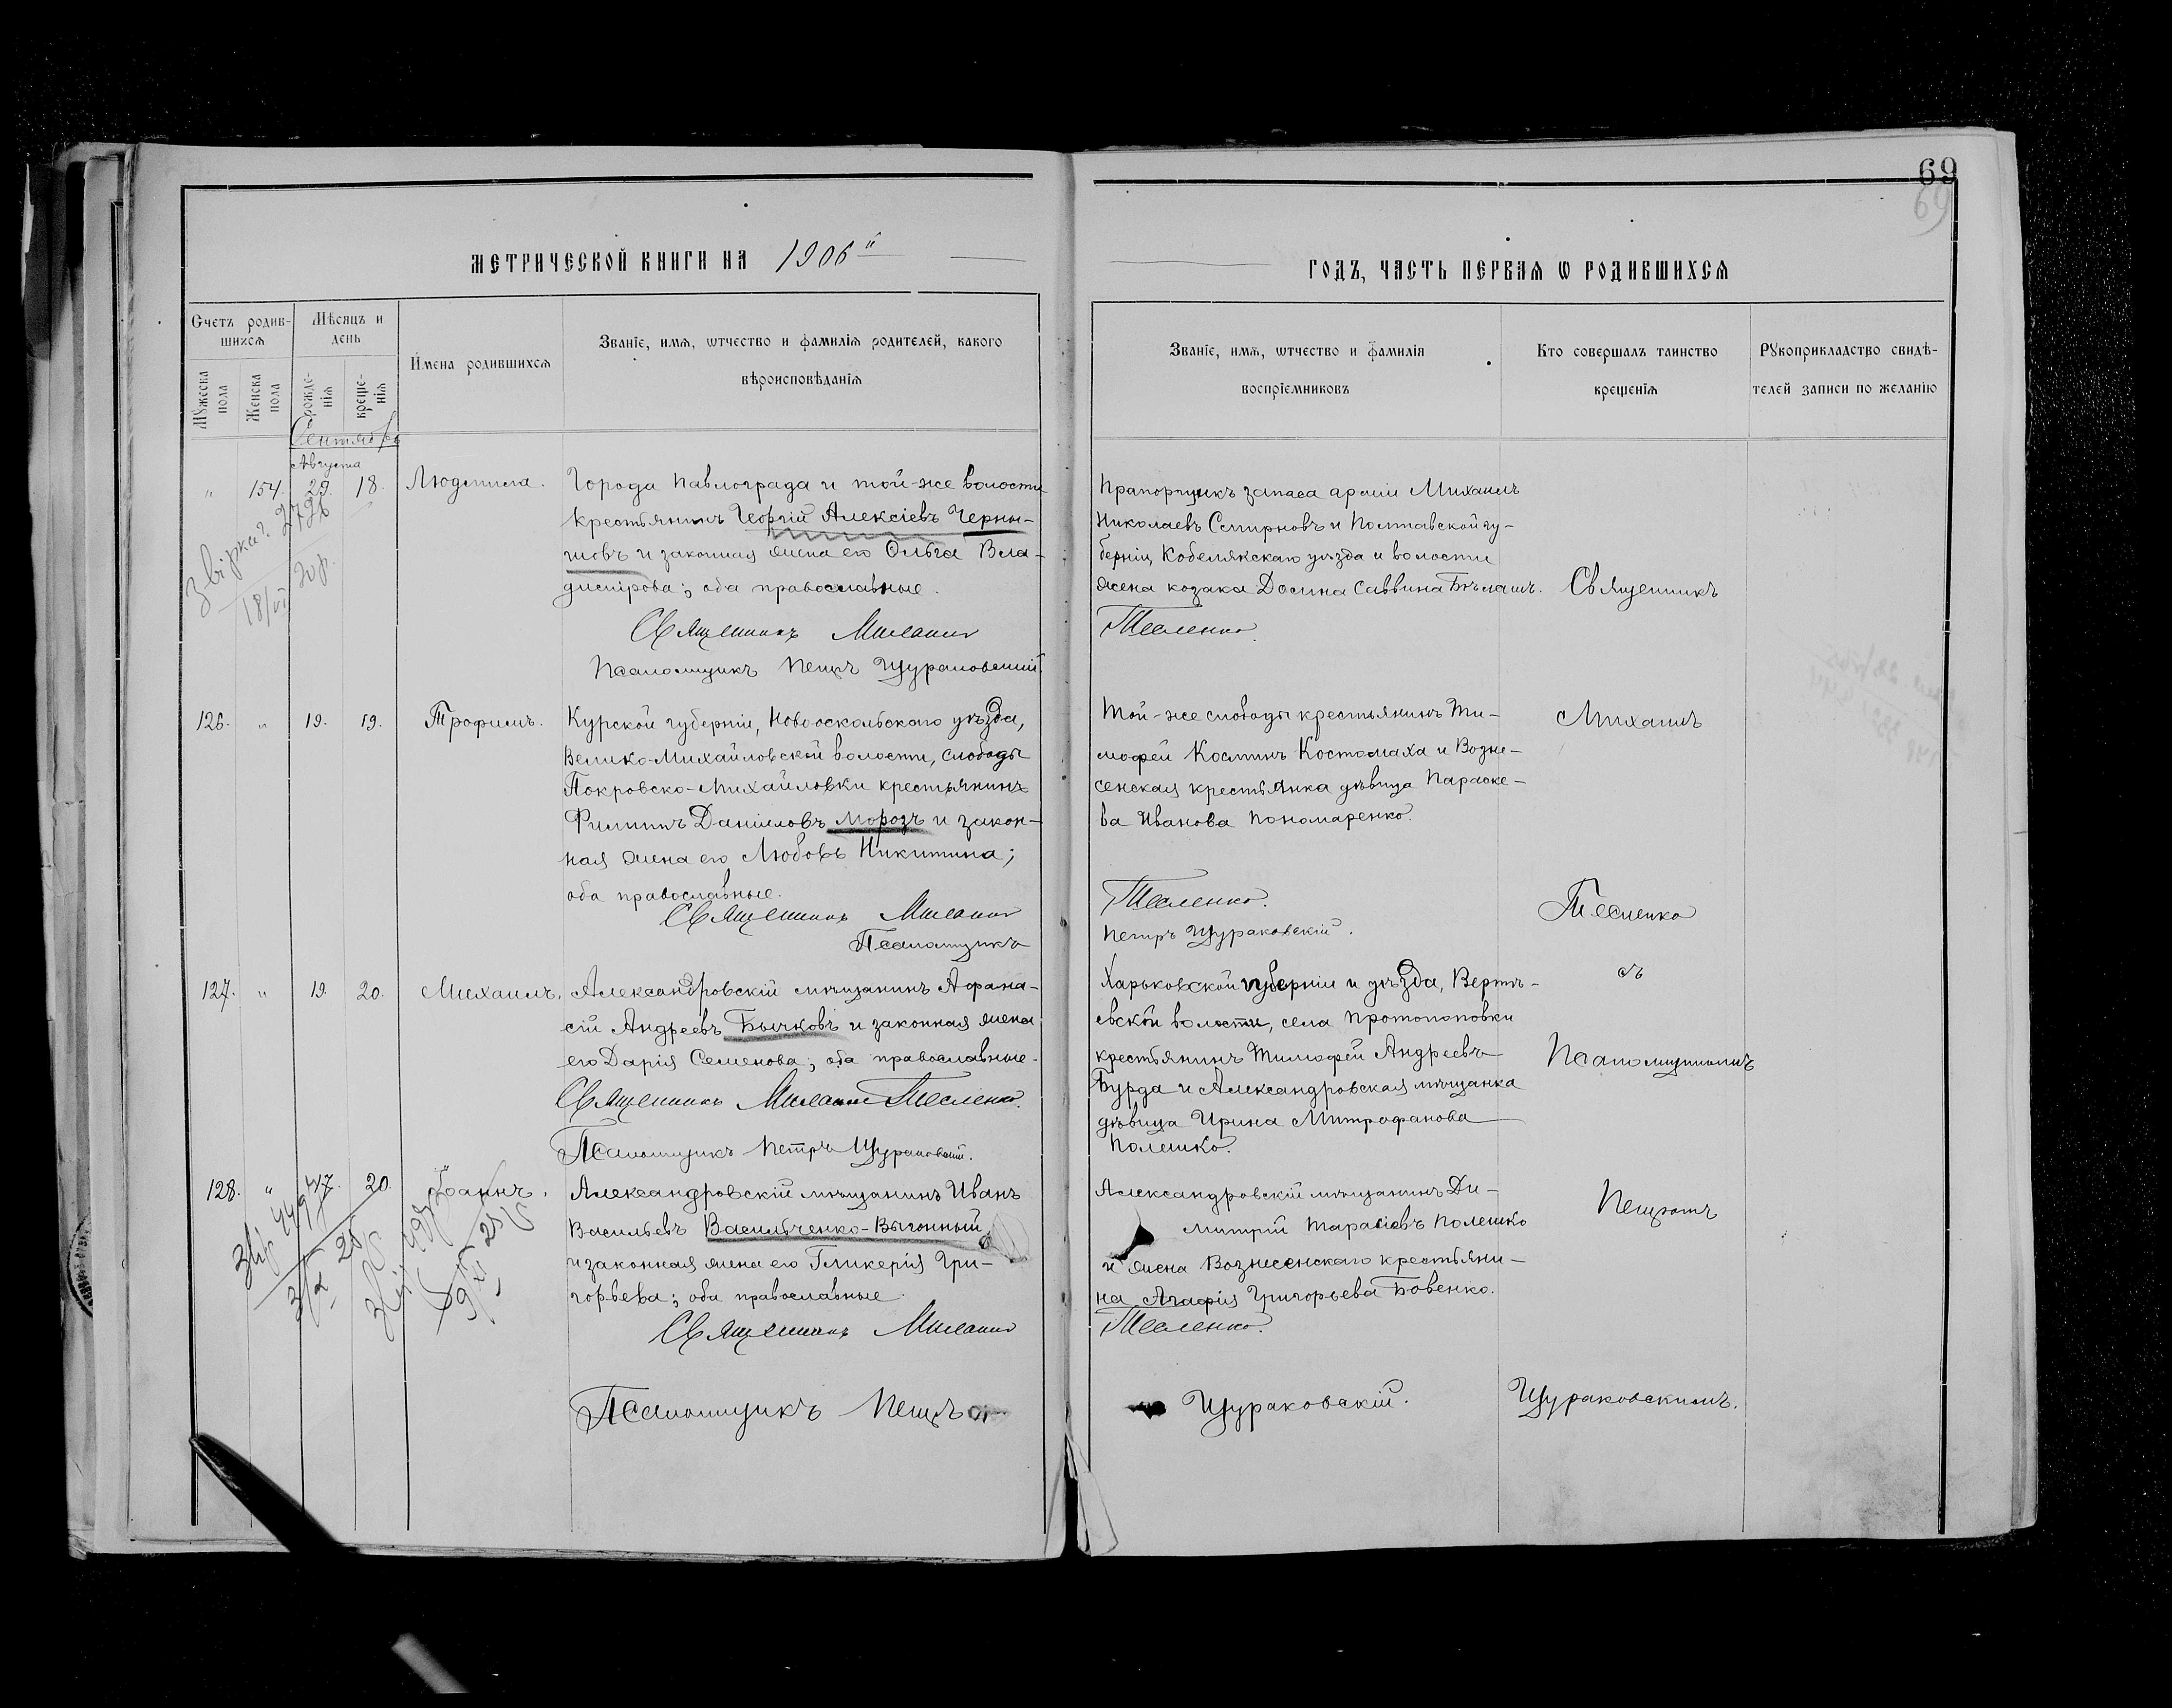 69
69
МЕТРИЧЕСКОЙ КНИГИ НА 1906 й
ГОДЪ, ЧАСТЬ ПЕРВАЯ Ѡ РОДИВШИХСЯ
Счетъ родив-
шихся
Мужеска пола
Женска пола
Мѣсяцъ и
день
рожде-
нія
креще-
нія
Имена родившихся
Званіе, имя, ѡтчество и фамилія родителей, какого
вѣроисповѣданія
Званіе, имя, ѡтчество и фамилія
воспріемниковъ
Кто совершалъ таинство
крещенія
Рукоприкладство свидѣ-
телей записи по желанію
Сентябрь
Августа
" 154. 29. 18. Людмила.
Города Павлограда и той-же волости
крестьянинъ Георгій Алексіевъ Черны-
шовъ и законная жена его Ольга Вла-
димірова; оба православные.
Священникъ Михаилъ
Псаломщикъ Петръ Щураковскій.
Прапорщикъ запаса арміи Михаилъ
Николаевъ Смирновъ и Полтавской гу-
берніи, Кобелякскаго уѣзда и волости
жена козака Домна Саввина Бѣлашъ.
Тесленко.
Священникъ
126. " 19. 19. Трофимъ.
Курской губерніи, Новооскольскаго уѣзда,
Велико-Михайловской волости, слободы
Покровско-Михайловки крестьянинъ
Филиппъ Даніиловъ Морозъ и закон-
ная жена его Любовь Никитина;
оба православные.
Священникъ Михаилъ
Псаломщикъ
Той-же слободы крестьянинъ Ти-
мофей Косминъ Костомаха и Возне-
сенская крестьянка дѣвица Параске-
ва Иванова Пономаренко.
Тесленко.
Петръ Щураковскій.
Михаилъ
Тесленко
127. " 19. 20. Михаилъ.
Александровскій мѣщанинъ Афана-
сій Андреевъ Бычковъ и законная жена
его Дарія Семенова; оба православные.
Священникъ Михаилъ Тесленко.
Псаломщикъ Петръ Щураковскій.
Харьковской губерніи и уѣзда, Вертѣ-
евской волости, села Протопоповки
крестьянинъ Тимофей Андреевъ
Бурда и Александровская мѣщанка
дѣвица Ирина Митрофанова
Полешко.
съ
Псаломщикомъ
128. " 17. 20. Іоаннъ.
Александровскій мѣщанинъ Иванъ
Васильевъ Васильченко-Выгонный
и законная жена его Гликерія Гри-
горьева; оба православные.
Священникъ Михаилъ
Псаломщикъ Петръ
Александровскій мѣщанинъ Ди-
митрій Тарасіевъ Полешко
и жена Вознесенскаго крестьяни-
на Агафія Григорьева Бовенко.
Тесленко.
Щураковскій.
Петромъ
Щураковскимъ.